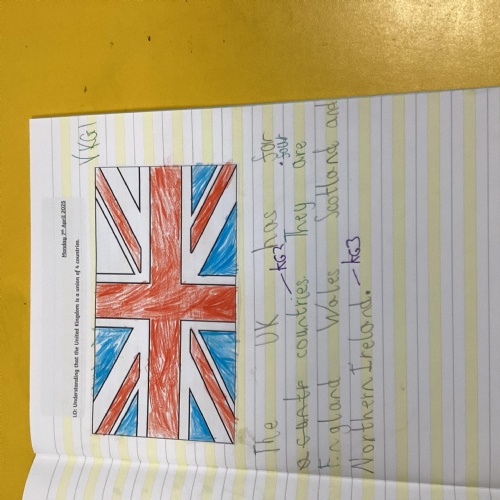 Monday 7th April 2025
LO: Understanding that the United Kingdom is a union of 4 countries.
VKG1
The UK has for
KG2 .four
countries. They are
England Wales Scotland and
Northern Ireland. KG3